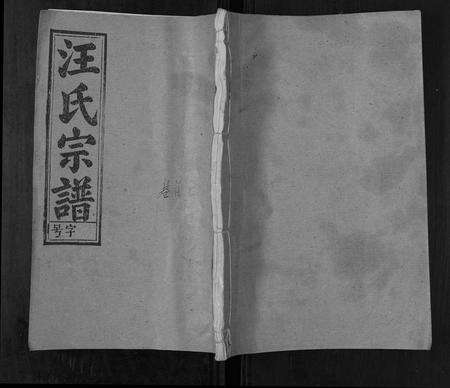 汪氏宗譜
字号